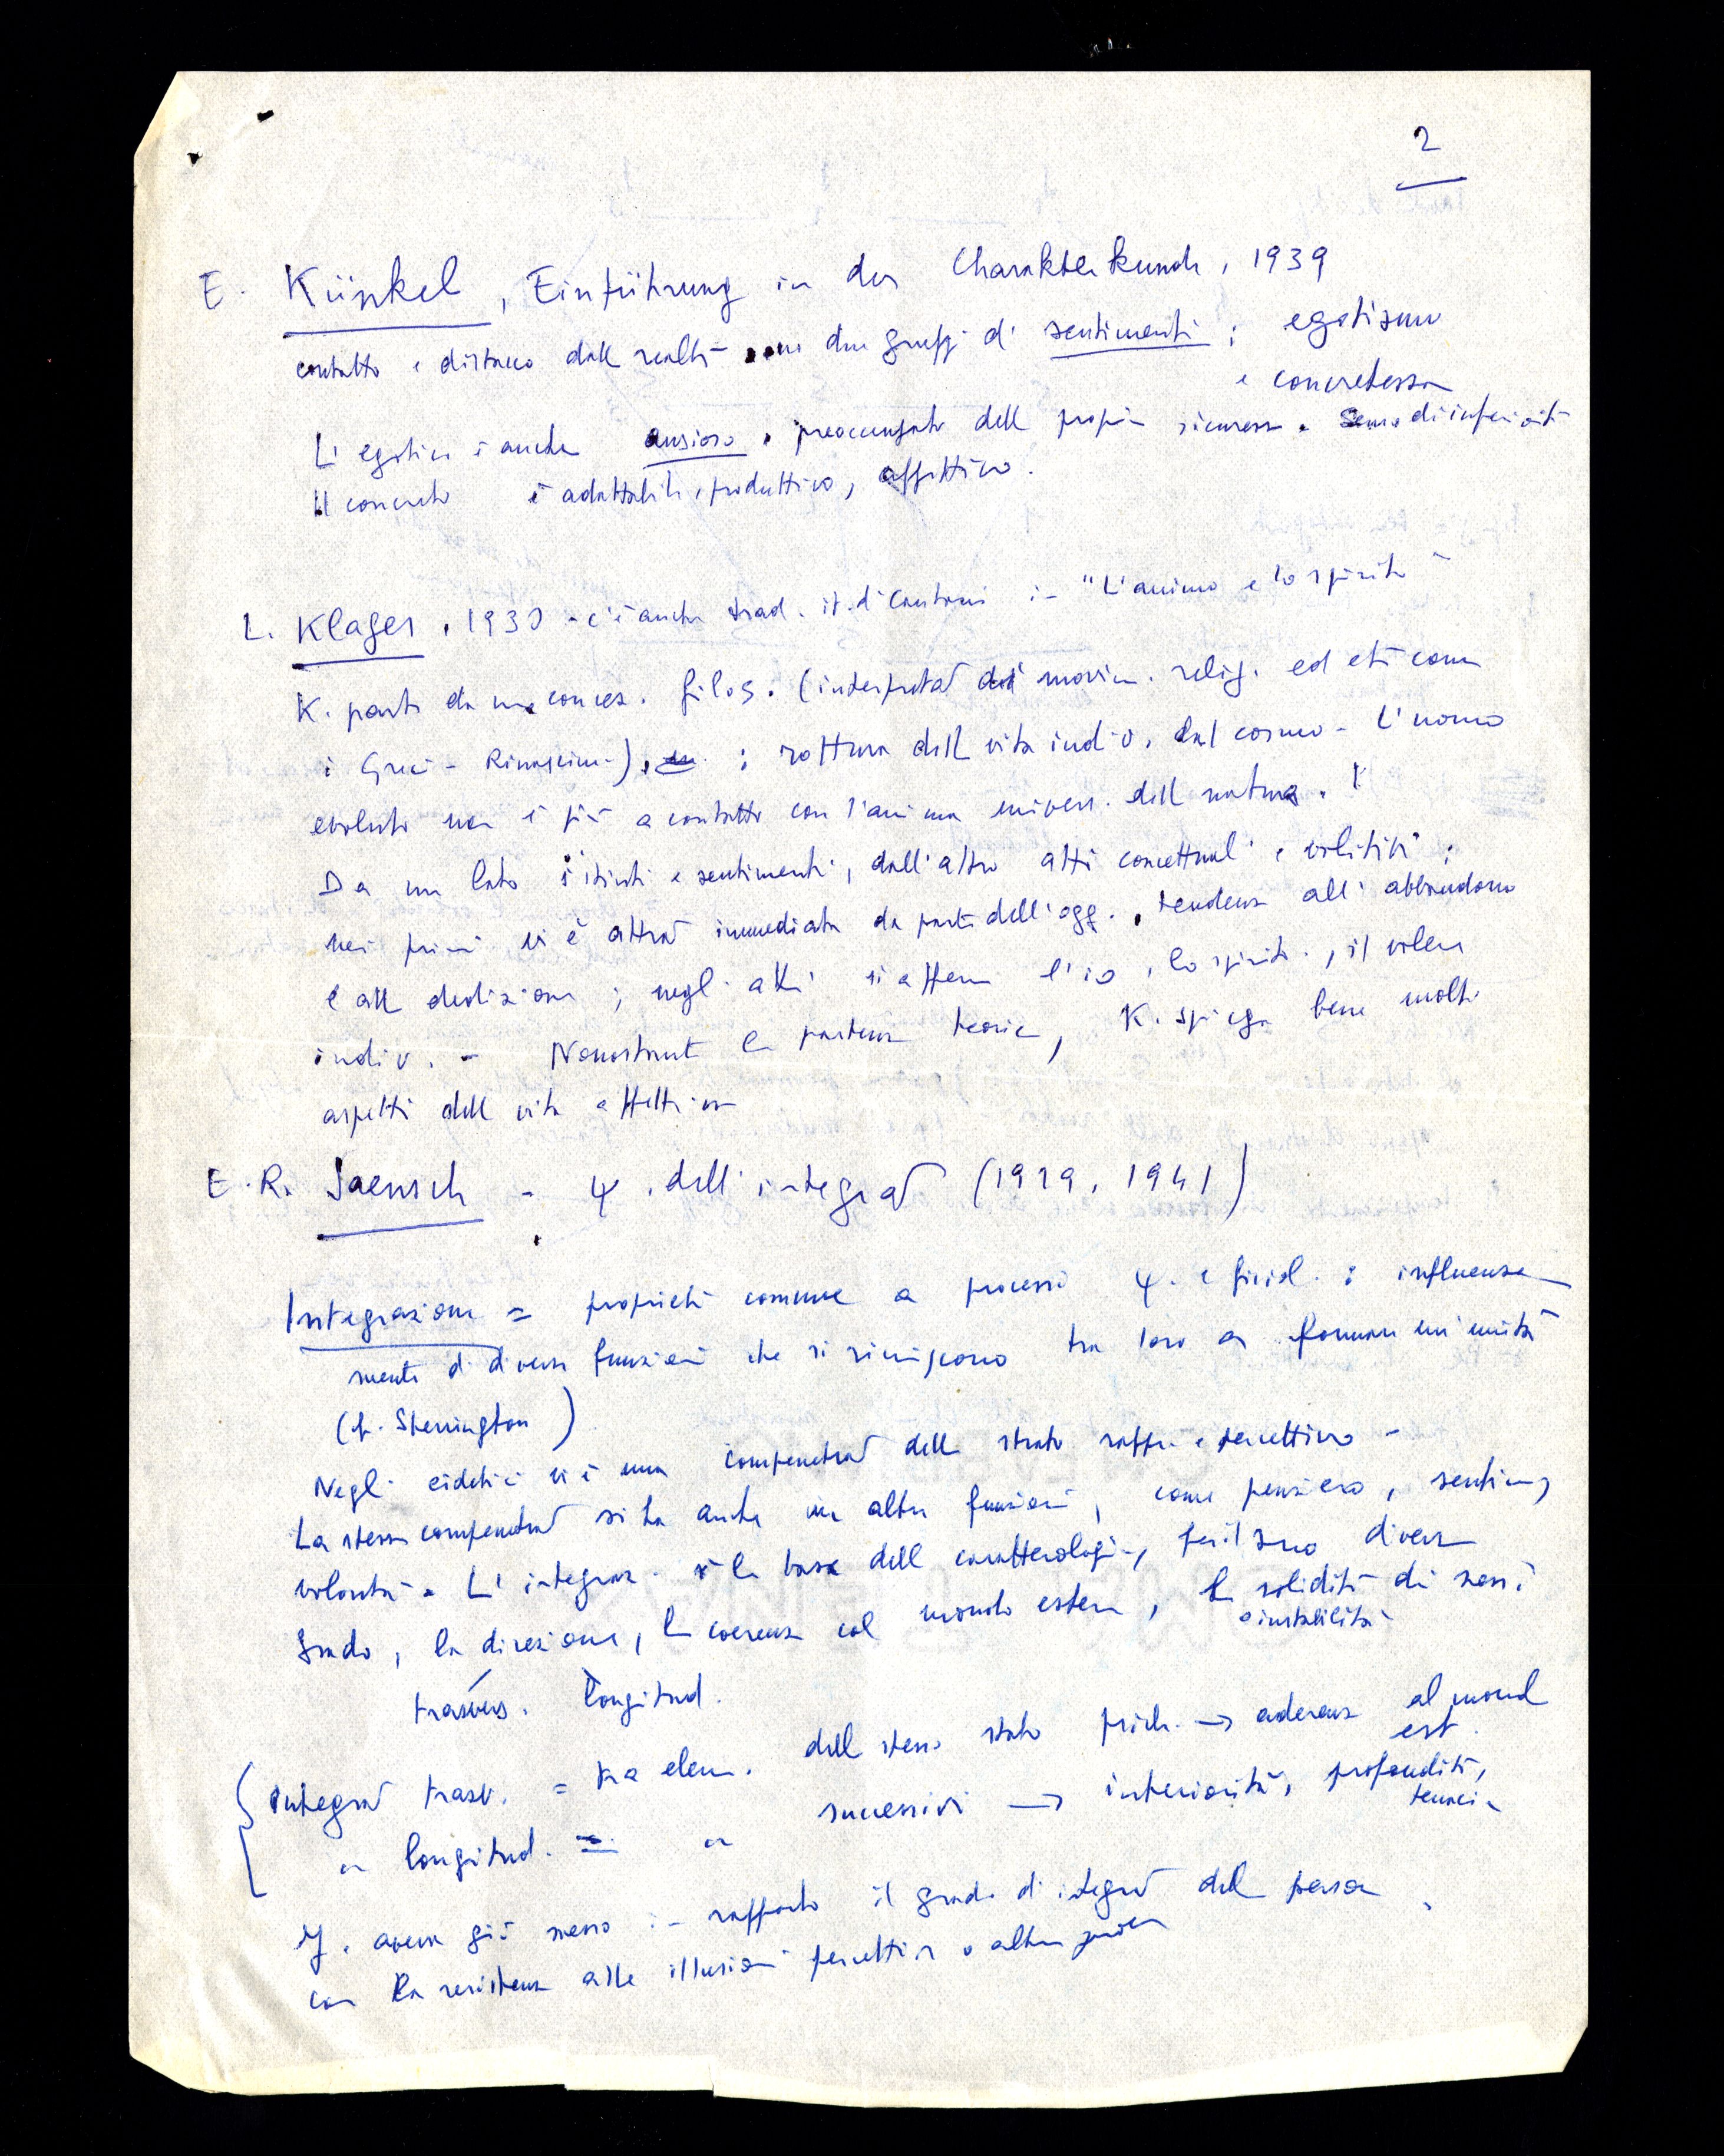 2
E. Künkel, Einführung in der Charakterkunde, 1939
contatto e distacco dalla realtà sono due gruppi di sentimenti : egotismo
e concretezza
L'egotico è anche ansioso, preoccupato della propria sicurezza. Senso di inferiorità
Il concreto è adattabile, produttivo, affettivo.
L. Klages, 1930 - c'è anche trad. it. di Cantoni in "L'anima e lo spirito"
K. parte da una concez. filos. (interpretaz dei movim. relig. ed età come
i Greci - Rinascim-) : rottura della vita indiv. dal cosmo - L'uomo
evoluto non è più a contatto con l'anima univers. della natura.
Da un lato istinti e sentimenti, dall'altro atti concettuali e volitivi :
nei primi vi è attraz immediata da parte dell'ogg., tendenza all'abbandono
e alla dedizione ; negli altri si afferma l'io, lo spirito, il volere
indiv. - Nonostante la partenza teorica, K. spiega bene molti
aspetti della vita affettiva
E.R. Jaensch - ψ. dell'integraz (1929, 1941)
Integrazione = proprietà comune a processi ψ. e fisiol. : influenza
mento di diverse funzioni che si riuniscono tra loro a formare un'unità
(cf. Sherrington)
Negli eidetici vi è una compenetraz dello strato rappr. e percettivo -
La stessa compenetraz si ha anche in altre funzioni, come pensiero, sentim,
volontà. L'integraz. è la base della caratterologia, per il suo diverso
grado, la direzione, la coerenza col mondo esterno, la solidità di nessi
o instabilità
trasvers. longitud.
Integraz trasv. = tra elem. dello stesso stato psich. → aderenza al mondo
est.
" longitud. = " successivi → interiorità, profondità,
tenacia
J. aveva già messo in rapporto il grado di integraz della persona
con la resistenza alle illusioni percettive o altre prove